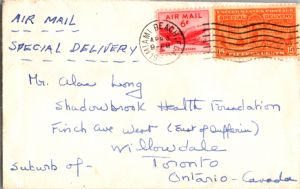 AIR MAIL
SPECIAL DELIVERY
MIAMI BEACH
APR
AIR MAIL
6¢
SPECIAL DELIVERY
Mr. Alan Long
Shadowbrook Health Foundation
Finch Ave West (East of Dufferin)
Willowdale
Suburb of - Toronto
Ontario - Canada